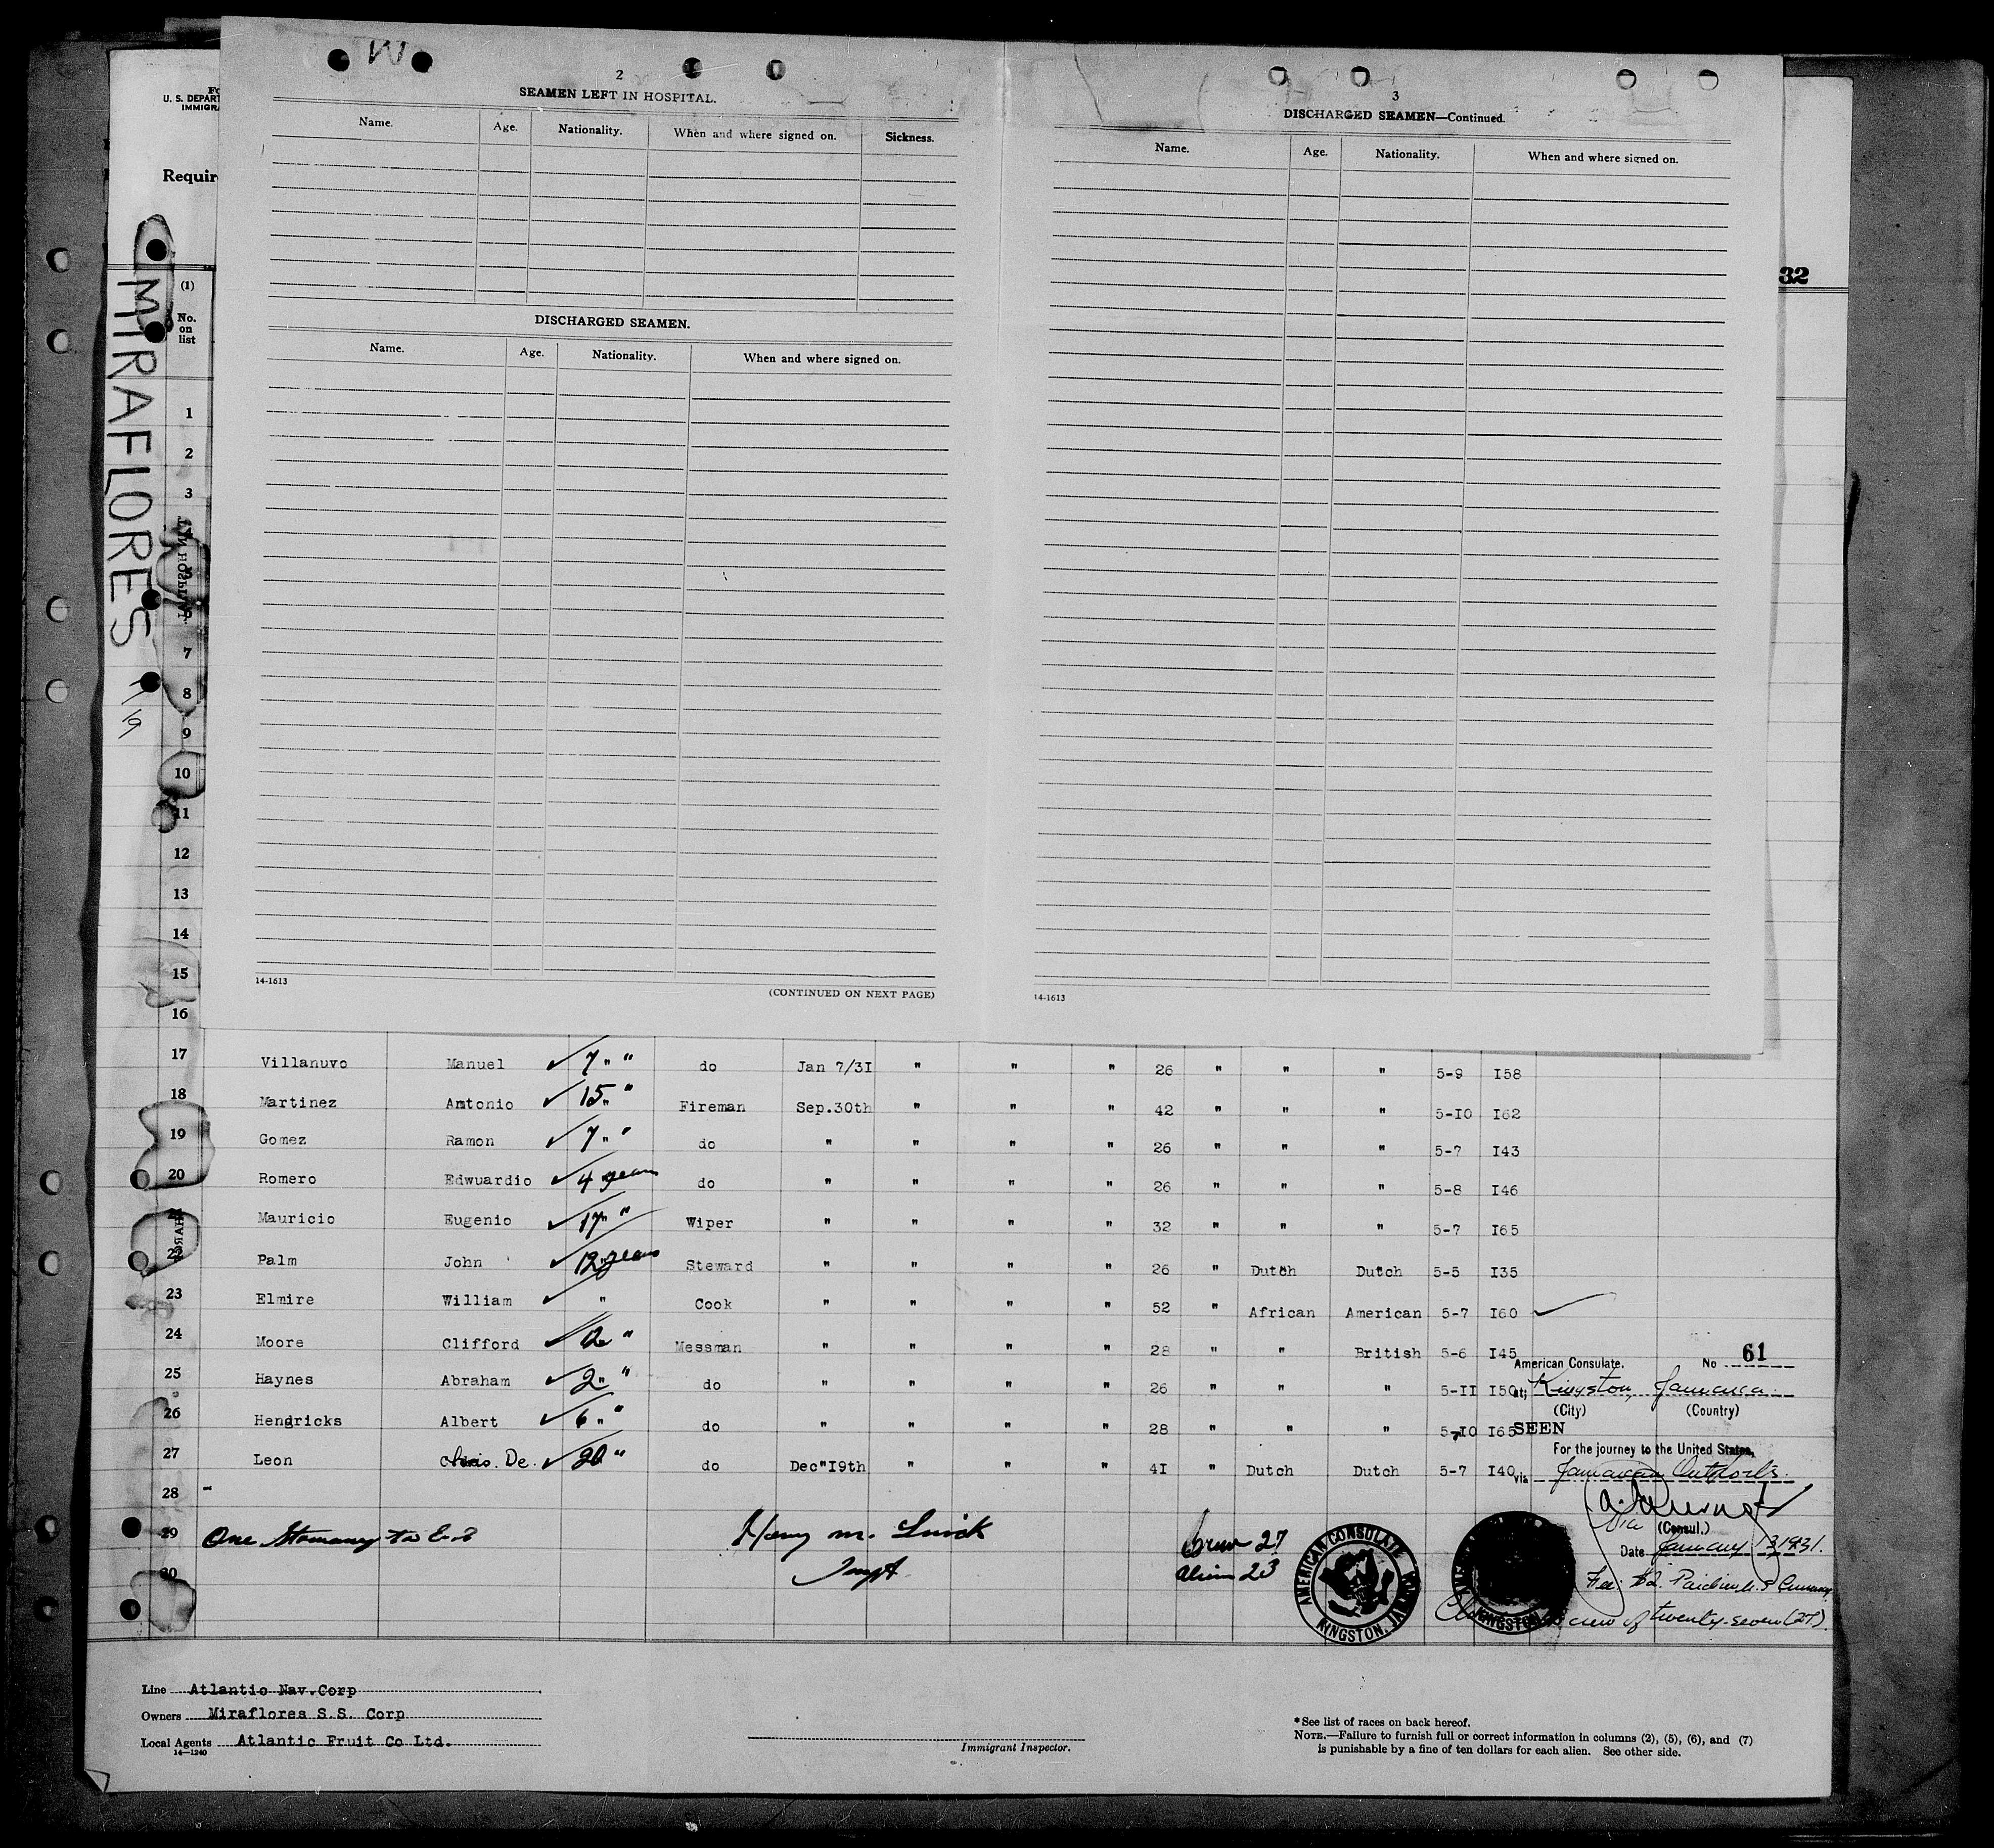 W
2
SEAMEN LEFT IN HOSPITAL.
Name. Age. Nationality. When and where signed on. Sickness.
DISCHARGED SEAMEN.
Name. Age. Nationality. When and where signed on.
14-1613
(CONTINUED ON NEXT PAGE)
3
DISCHARGED SEAMEN—Continued.
Name. Age. Nationality. When and where signed on.
14-1613
U. S. DEPART
IMMIGRA
Require
32
MIRAFLORES
(1)
No.
on
list
1
2
3
7
8
9
10
11
12
13
14
15
16
17 Villanuvo Manuel ✓ 7 " " do Jan 7/3I " " " 26 " " " 5-9 I58
18 Martinez Antonio ✓ 15 " " Fireman Sep.30th " " " 42 " " " 5-IO I62
19 Gomez Ramon ✓ 7 " " do " " " " 26 " " " 5-7 I43
20 Romero Edwuardio ✓ 4 years do " " " " 26 " " " 5-8 I46
21 Mauricio Eugenio ✓ 17 " " Wiper " " " " 32 " " " 5-7 I65
22 Palm John ✓ 12 years Steward " " " " 26 " Dutch Dutch 5-5 I35
23 Elmire William ✓ " Cook " " " " 52 " African American 5-7 I60 ✓
24 Moore Clifford ✓ " Messman " " " " 28 " " British 5-6 I45
25 Haynes Abraham ✓ 2 " " do " " " " 26 " " " 5-II I50
26 Hendricks Albert ✓ 6 " " do " " " " 28 " " " 5-10 I65
27 Leon Chris. De. ✓ 20 " do Dec"I9th " " " 4I " Dutch Dutch 5-7 I40
28
29 One to
30
Harry M.
Inspt
Crew 27
Alien 23
American Consulate. No 61
at; Kingston, Jamaica
(City) (Country)
SEEN
For the journey to the United States,
via Jamaican Outports.
Vice (Consul.)
Date January 13 1931.
Fee: $2. Paid in U.S. Currency
crew of twenty-seven (27).
AMERICAN CONSULATE
KINGSTON, JAMAICA
KINGSTON
Line Atlantic Nav.Corp
Owners Miraflores S.S. Corp
Local Agents Atlantic Fruit Co Ltd.
14—1240
Immigrant Inspector.
*See list of races on back hereof.
NOTE.—Failure to furnish full or correct information in columns (2), (5), (6), and (7)
is punishable by a fine of ten dollars for each alien. See other side.